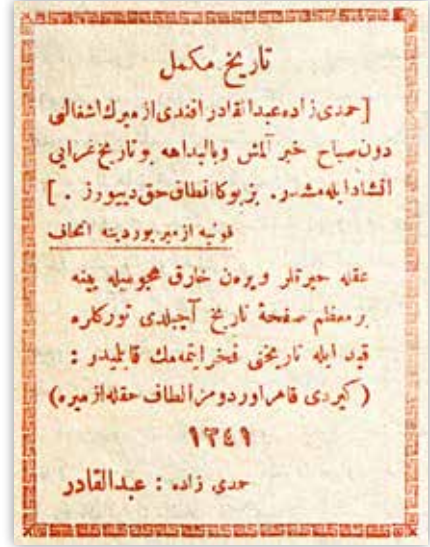 تاریخ مکمل
[حمدی زاده عبدالقادر افندی ازمیرك اشغالی
دون صباح خبر آلمش وبالبداهه بو تاریخ غرایی
انشاد ایله‌مشدر. بز بوکا الطاف حق دییورز . ]
قونیه ازمیر اوردیسنه اتحاف
عقله حیرتلر ویره‌ن خارق هجومیله ینه
بر معظم صفحهٔ تاریخ آچیلدی تورکلره
قید ایله تاریخنی فخر ایتمه‌مك قابلمیدر :
( کیردی قاهر اوردومز الطاف حقله ازمیره )
١٣٤١
حمدی زاده : عبدالقادر